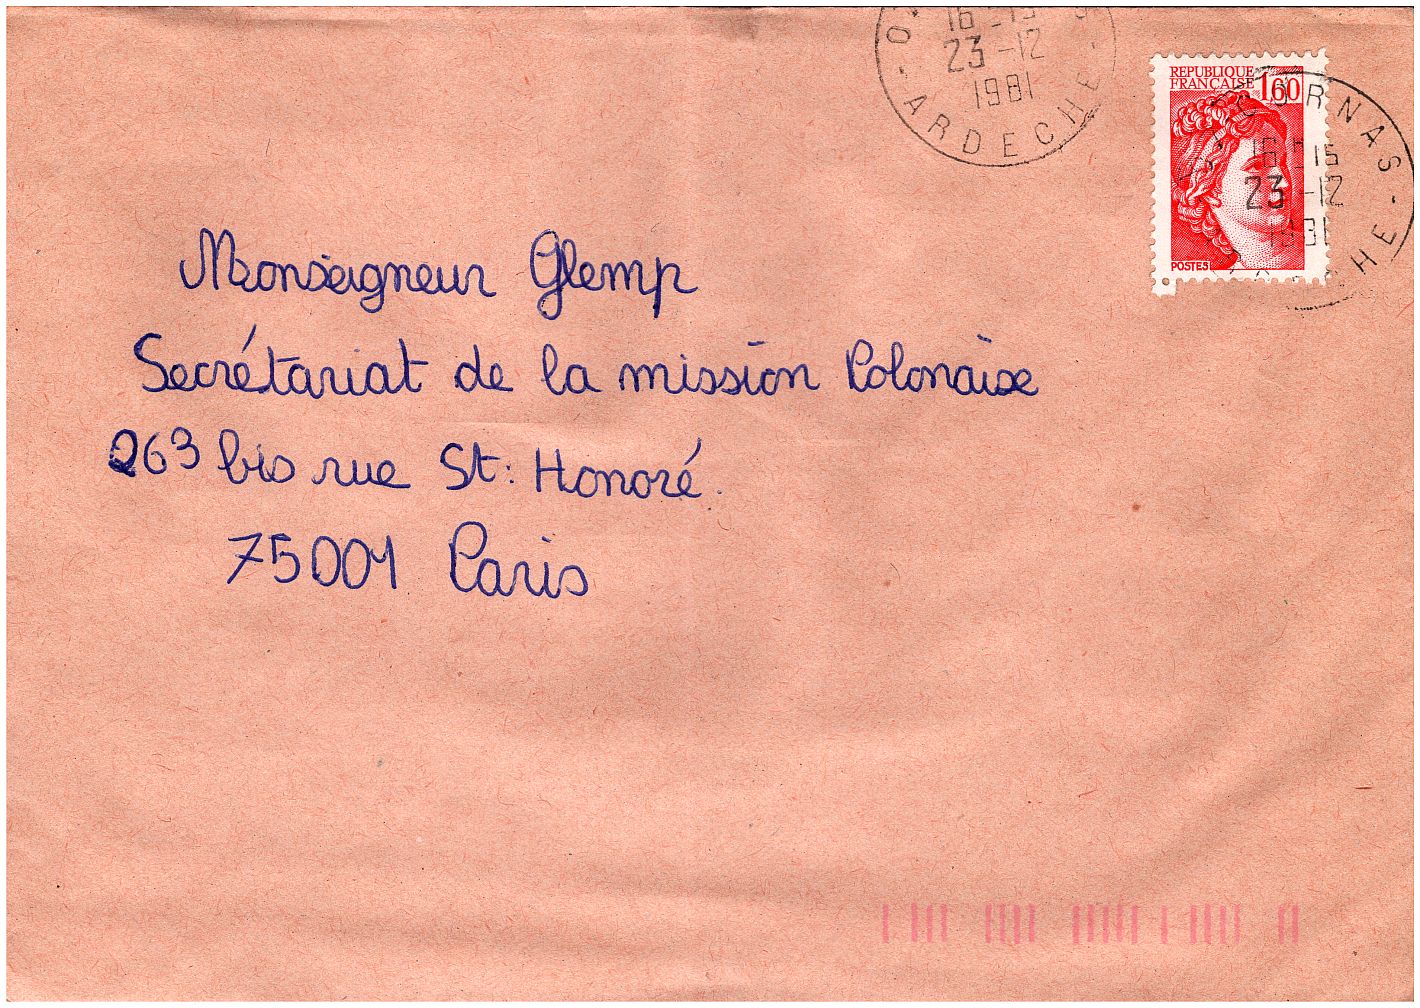 16 - 15
23 - 12
1981
ARDECHE
REPUBLIQUE
FRANÇAISE 1,60
CORNAS
16 - 15
23 - 12
1981
POSTES
Monseigneur Glemp
Secrétariat de la mission Polonaise
263 bis rue St: Honoré.
75001 Paris